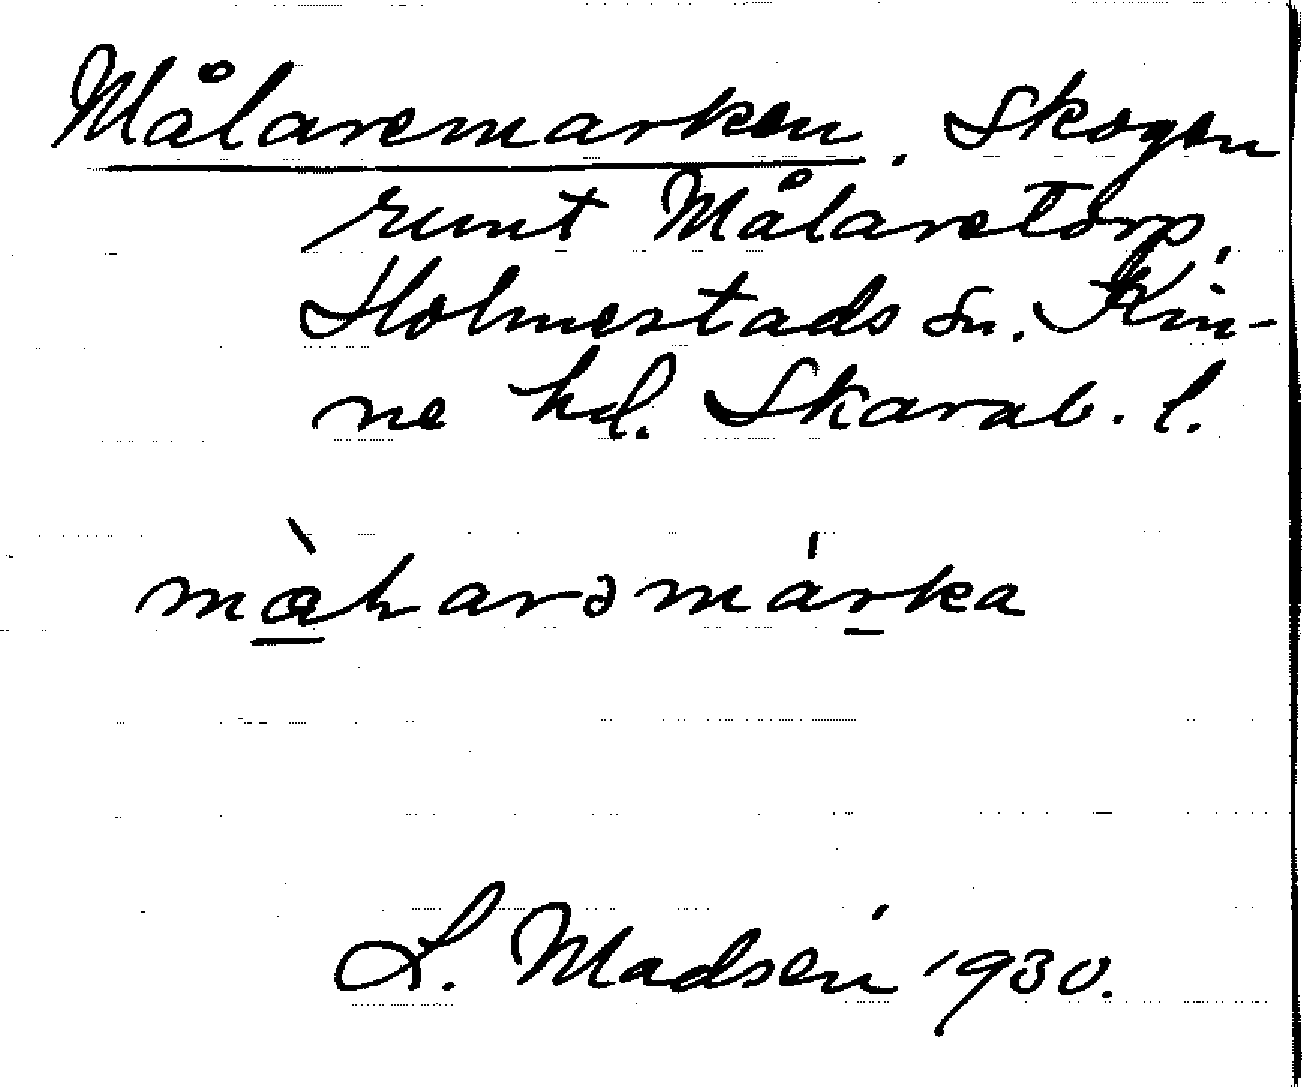 Målaremarken. Skogen
runt Målaretorp,
Holmestads sn. Kin-
ne hd. Skarab. l.
L. Madsén 1930.